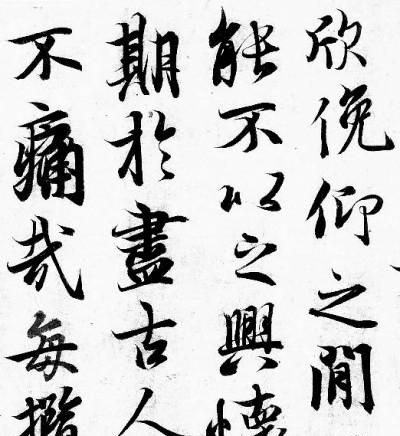 欣俛仰之間
能不以之興懷
期於盡古人
不痛哉每攬